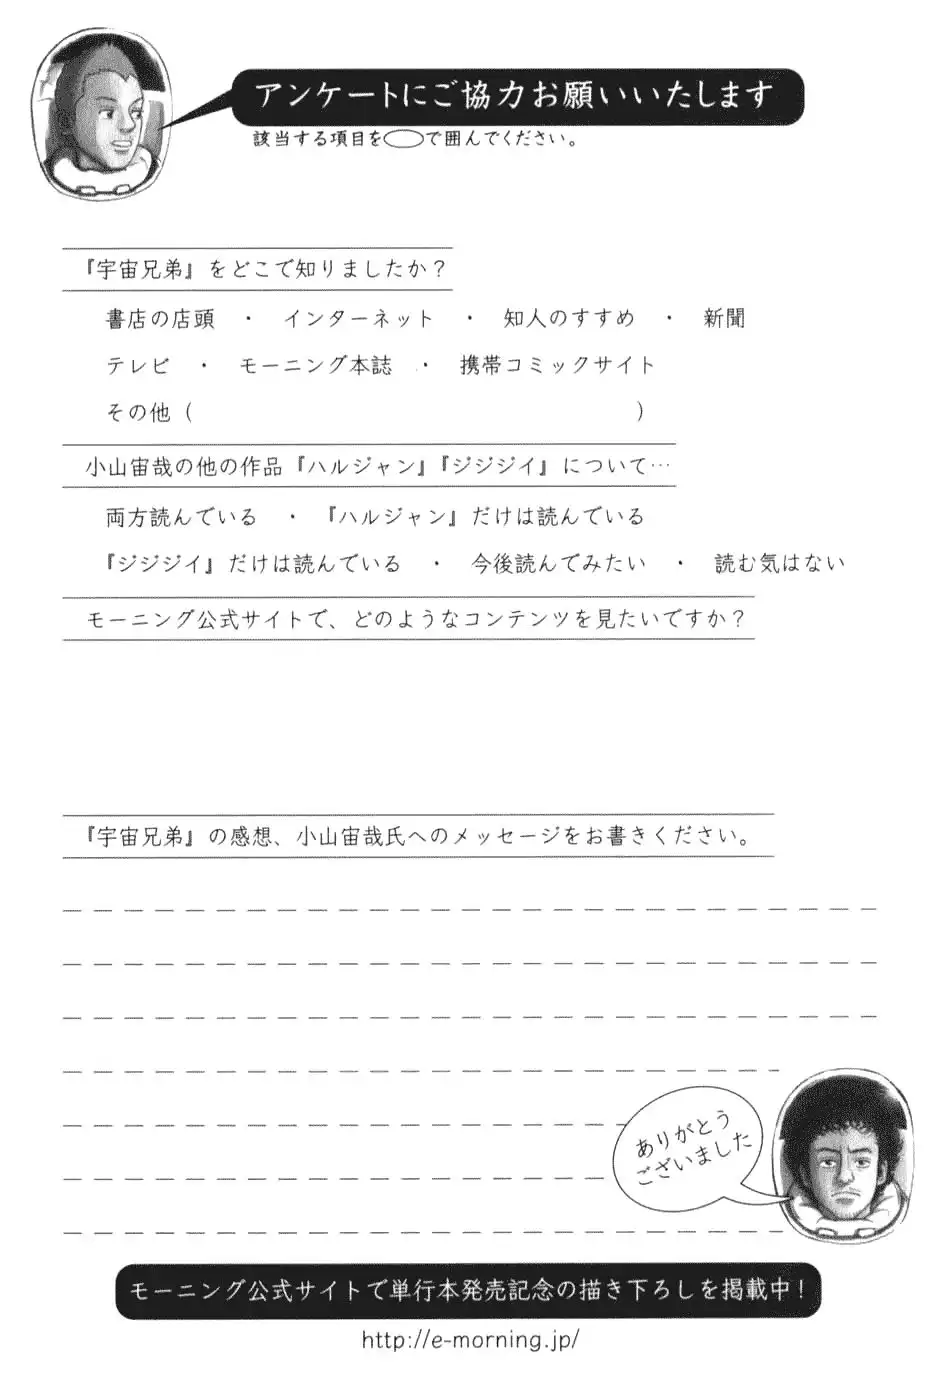 アンケートにご協力お願いいたします
該当する項目を◯で囲んでください。
『宇宙兄弟』をどこで知りましたか？
書店の店頭　・　インターネット　・　知人のすすめ　・　新聞
テレビ　・　モーニング本誌　・　携帯コミックサイト
その他（　　　　　　　　　　　　　　　　　　　　）
小山宙哉の他の作品『ハルジャン』『ジジジイ』について…
両方読んでいる　・　『ハルジャン』だけは読んでいる
『ジジジイ』だけは読んでいる　・　今後読んでみたい　・　読む気はない
モーニング公式サイトで、どのようなコンテンツを見たいですか？
『宇宙兄弟』の感想、小山宙哉氏へのメッセージをお書きください。
ありがとう
ございました
モーニング公式サイトで単行本発売記念の描き下ろしを掲載中！
http://e-morning.jp/